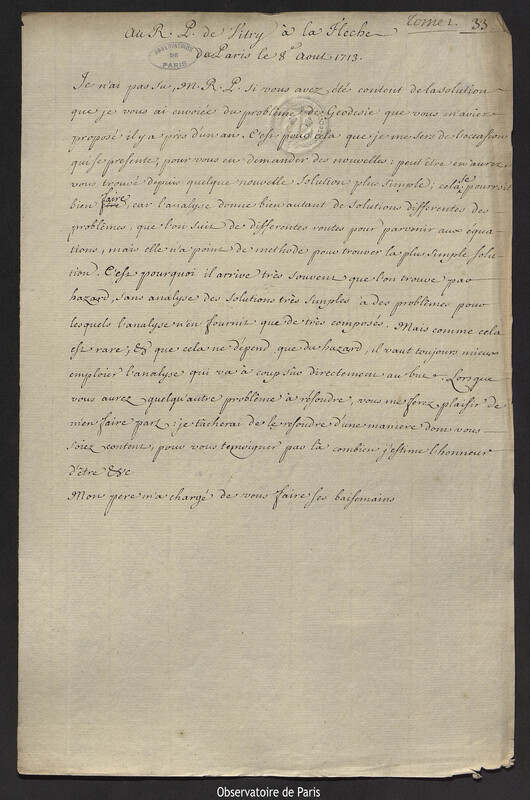 Tome 1. 33
Au R. P. de Vitry à la Fleche
De Paris le 8e Aout 1713.
OBSERVATOIRE DE PARIS
Je n'ai pas su, M. R. P. si vous avez été content de la solution
que je vous ai envoiée du problème de Geodesie que vous m'aviez
proposé il y a près d'un an. C'est pour cela que je me sers de l'occasion
qui se presente, pour vous en demander des nouvelles: peut être en aurez
vous trouvé depuis quelque nouvelle solution plus simple; cela se pourroit
bien faire, car l'analyse donne bien autant de solutions differentes des
problèmes, que l'on suit de differentes routes pour parvenir aux équa
tions, mais elle n'a point de methode pour trouver la plus simple solu-
tion. C'est pourquoi il arrive très souvent que l'on trouve par
hazard, sans analyse des solutions très simples à des problèmes pour
lesquels l'analyse n'en fournit que de très composés. Mais comme cela
est rare, & que cela ne dépend que du hazard, il vaut toujours mieux
emploier l'analyse qui va à coup sûr directement au but. Lorsque
vous aurez quelqu'autre problème à résoudre, vous me ferez plaisir de
m'en faire part: je tâcherai de le resoudre d'une maniere dont vous
soiez content, pour vous temoigner par là combien j'estime l'honneur
d'être &c
Mon pere m'a chargé de vous faire ses baisemains
Observatoire de Paris